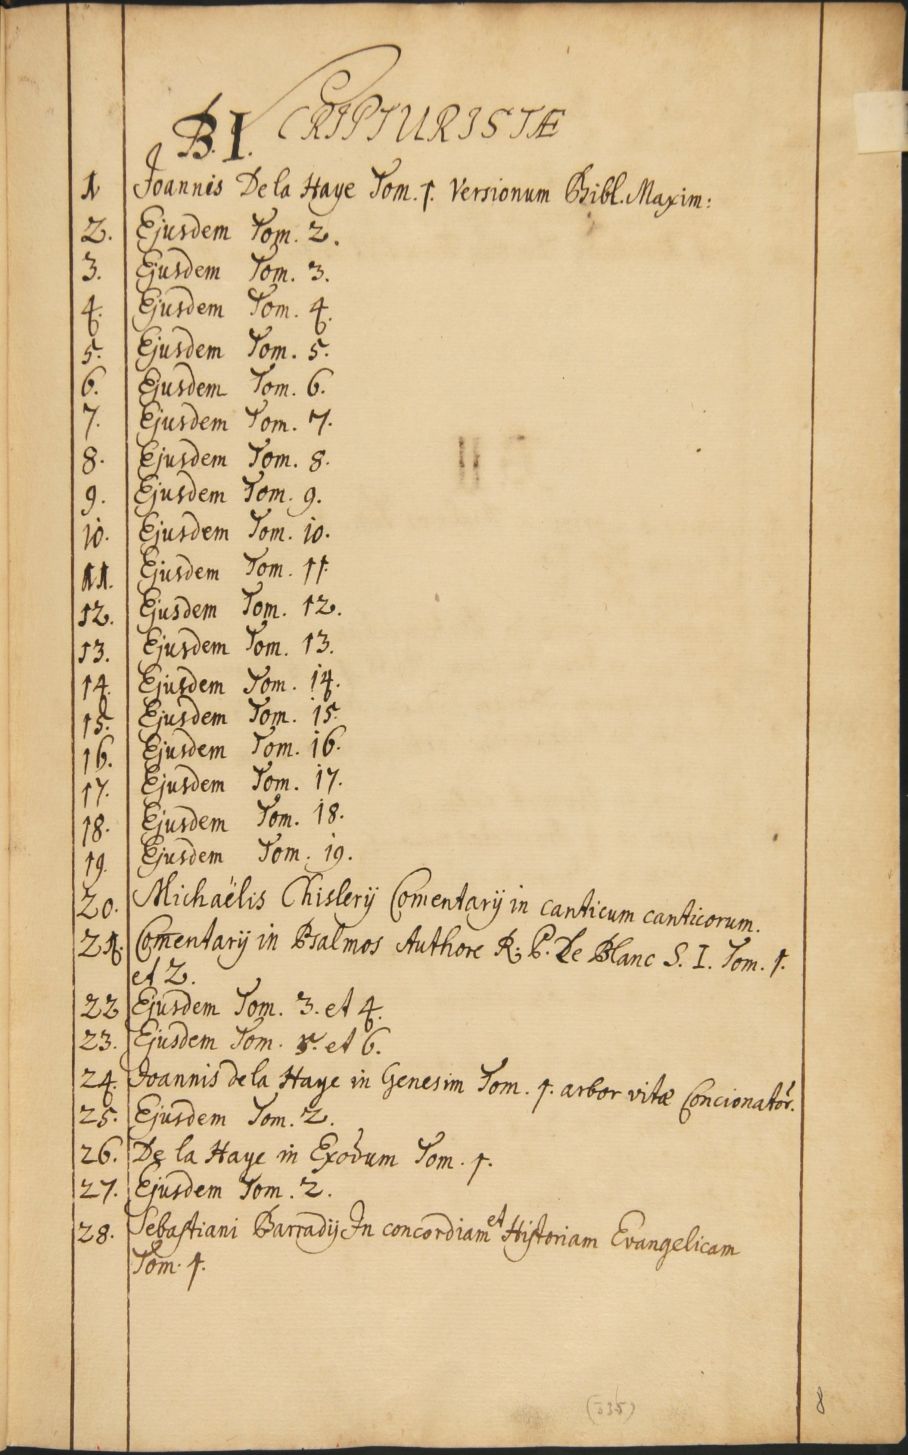 B.I. SCRIPTURISTÆ
1 Joannis De la Haye Tom. 1. Versionum Bibl. Maxim:
2. Ejusdem Tom. 2.
3. Ejusdem Tom. 3.
4. Ejusdem Tom. 4.
5. Ejusdem Tom. 5.
6. Ejusdem Tom. 6.
7. Ejusdem Tom. 7.
8. Ejusdem Tom. 8.
9. Ejusdem Tom. 9.
10. Ejusdem Tom. 10.
11. Ejusdem Tom. 11.
12. Ejusdem Tom. 12.
13. Ejusdem Tom. 13.
14. Ejusdem Tom. 14.
15. Ejusdem Tom. 15.
16. Ejusdem Tom. 16.
17. Ejusdem Tom. 17.
18. Ejusdem Tom. 18.
19. Ejusdem Tom. 19.
20. Michaëlis Chislerij Comentarij in canticum canticorum.
21. Comentarij in Psalmos Authore R. P. Le Blanc S. I. Tom. 1.
et 2.
22 Ejusdem Tom. 3. et 4.
23. Ejusdem Tom. 5. et 6.
24. Joannis de la Haye in Genesim Tom. 1. arbor vitæ Concionator.
25. Ejusdem Tom. 2.
26. De la Haye in Exodum Tom. 1.
27. Ejusdem Tom. 2.
28. Sebastiani Barradij In concordiam et Historiam Evangelicam
Tom. 1.
8